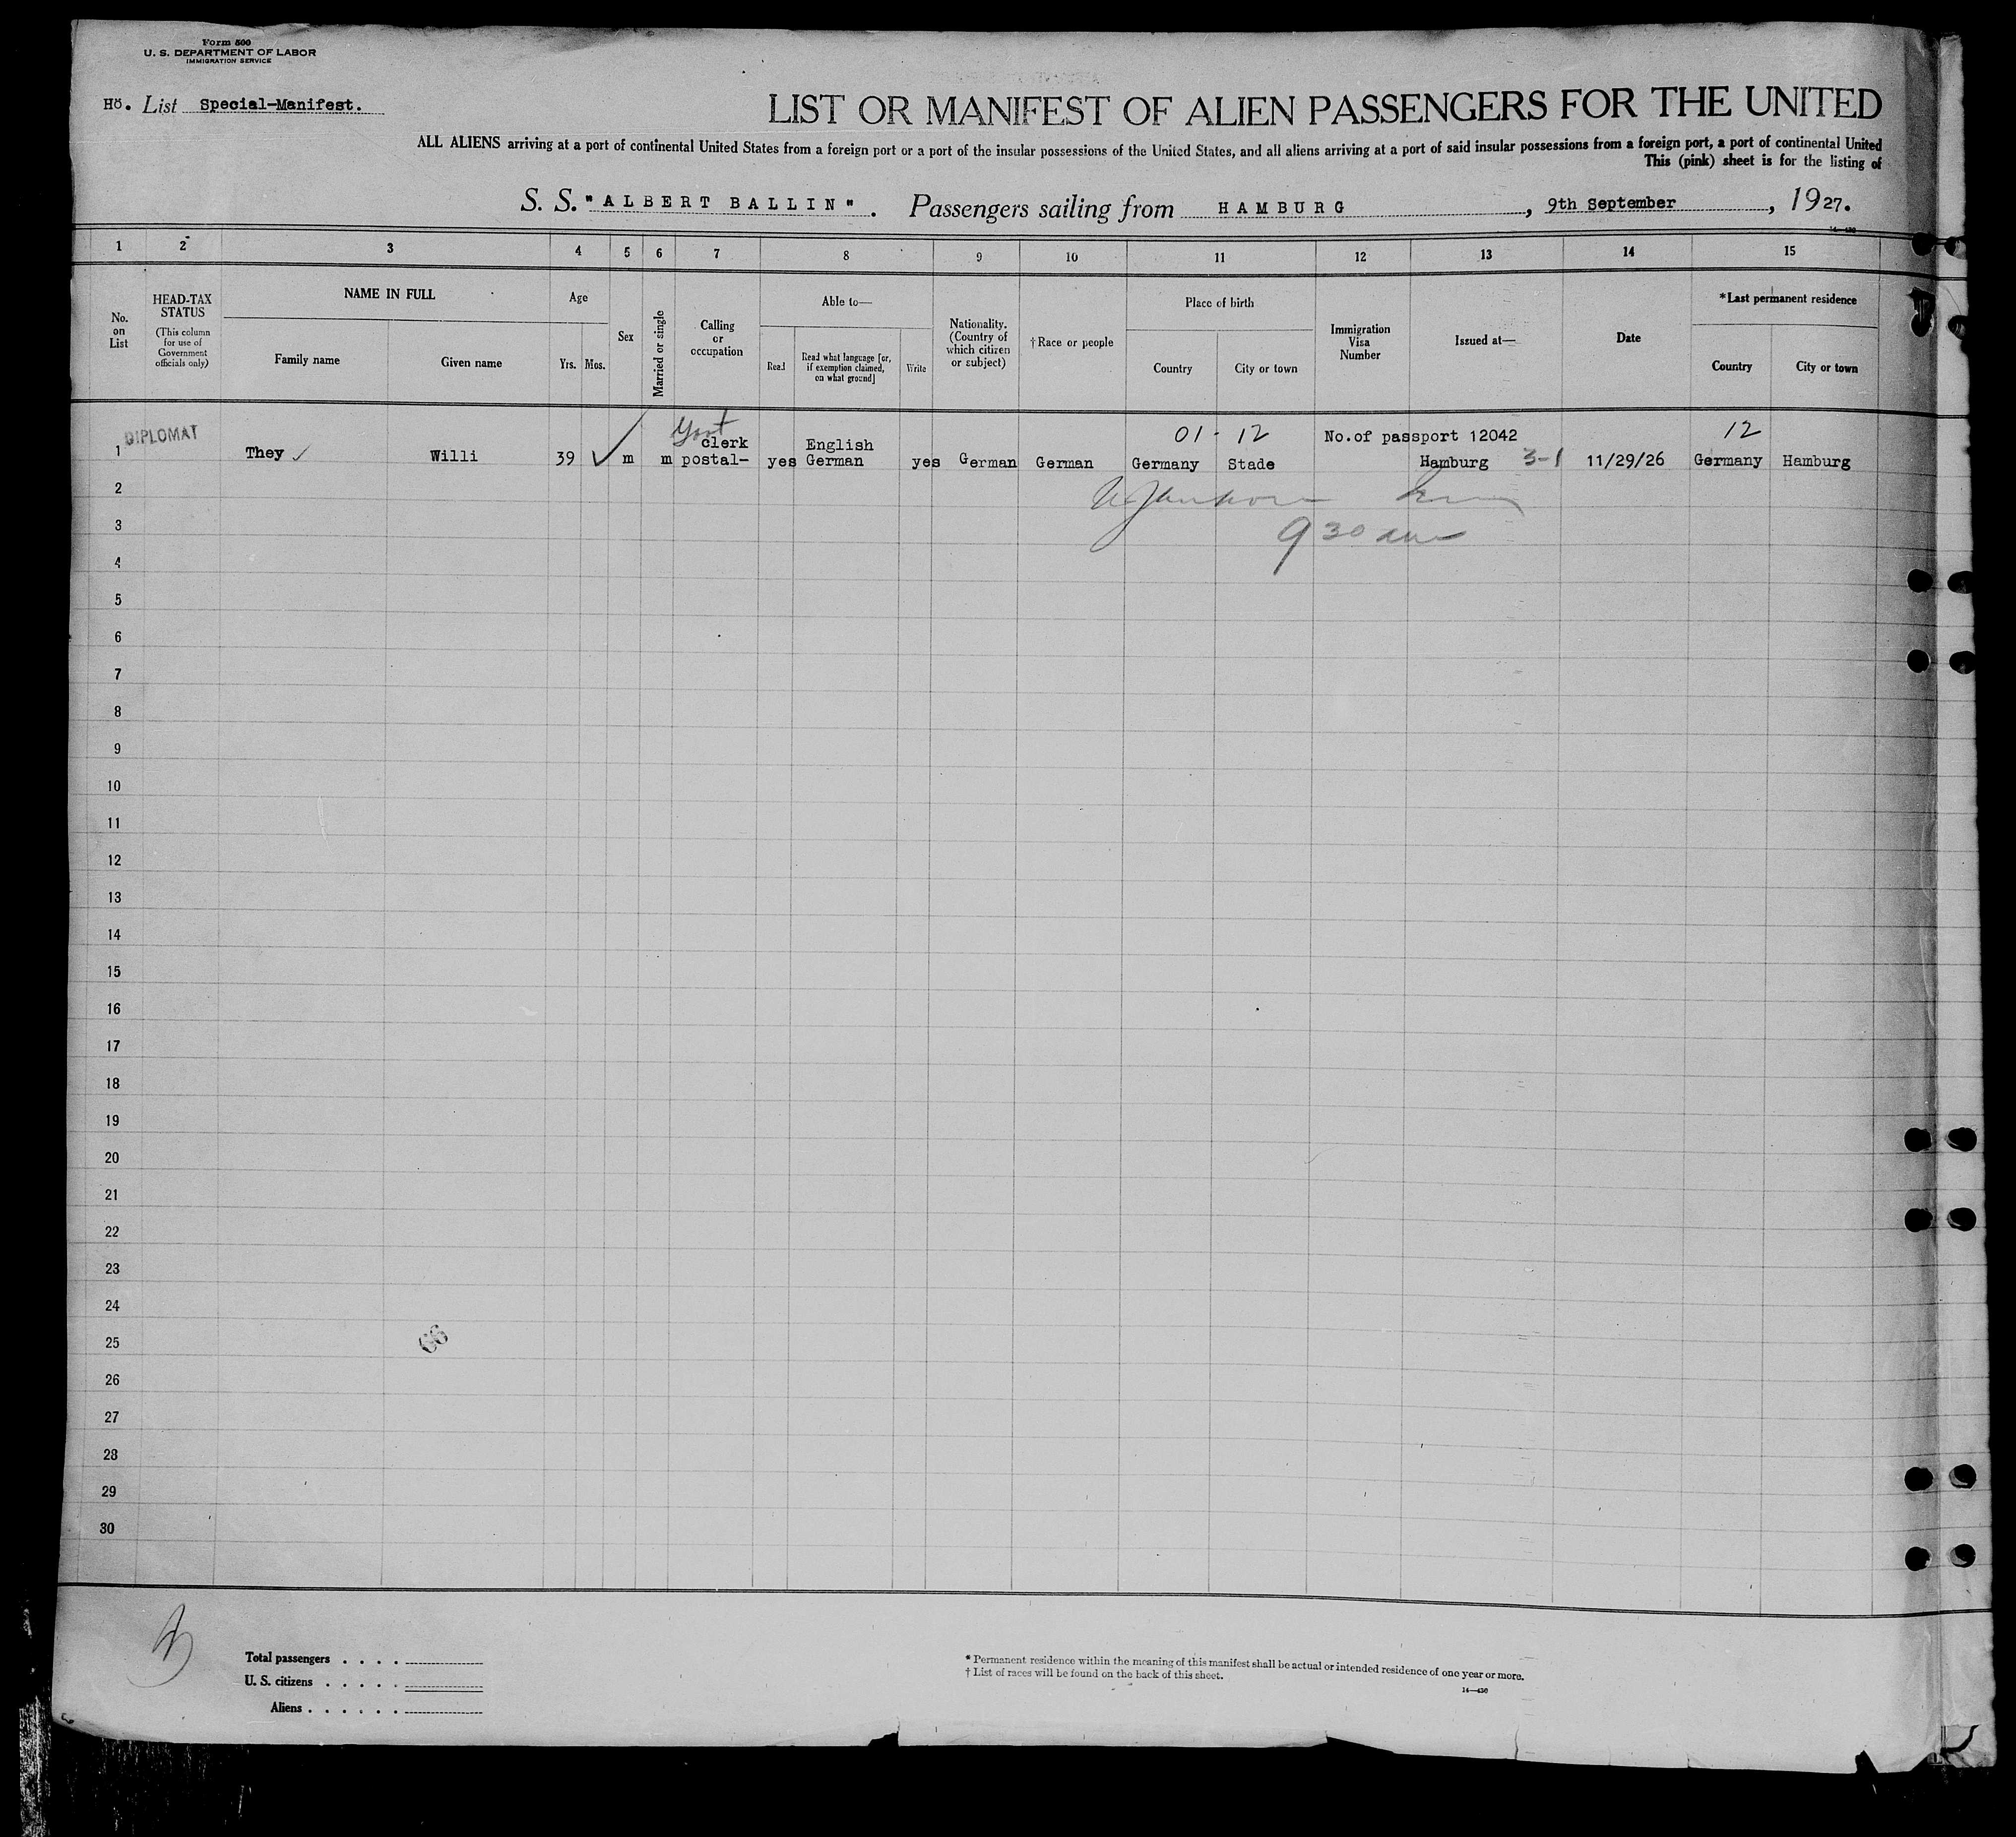 Form 500
U. S. DEPARTMENT OF LABOR
IMMIGRATION SERVICE
Hö. List Special-Manifest.
LIST OR MANIFEST OF ALIEN PASSENGERS FOR THE UNITED
ALL ALIENS arriving at a port of continental United States from a foreign port or a port of the insular possessions of the United States, and all aliens arriving at a port of said insular possessions from a foreign port, a port of continental United
This (pink) sheet is for the listing of
S. S. "ALBERT BALLIN". Passengers sailing from HAMBURG, 9th September, 1927.
14—430
1 2 3 4 5 6 7 8 9 10 11 12 13 14 15
No. on List
HEAD-TAX STATUS
(This column for use of Government officials only)
NAME IN FULL
Family name Given name
Age
Yrs. Mos.
Sex
Married or single
Calling or occupation
Able to—
Read
Read what language [or, if exemption claimed, on what ground]
Write
Nationality. (Country of which citizen or subject)
†Race or people
Place of birth
Country City or town
Immigration Visa Number
Issued at—
Date
*Last permanent residence
Country City or town
DIPLOMAT
Govt
01 - 12
12
clerk English No. of passport 12042
1 They Willi 39 m m postal- yes German yes German German Germany Stade Hamburg 3-1 11/29/26 Germany Hamburg
2
3
9 30 am
4
5
6
7
8
9
10
11
12
13
14
15
16
17
18
19
20
21
22
23
24
25
66
26
27
28
29
30
Total passengers . . . .
U. S. citizens . . . . .
Aliens . . . . . .
* Permanent residence within the meaning of this manifest shall be actual or intended residence of one year or more.
† List of races will be found on the back of this sheet.
14—430